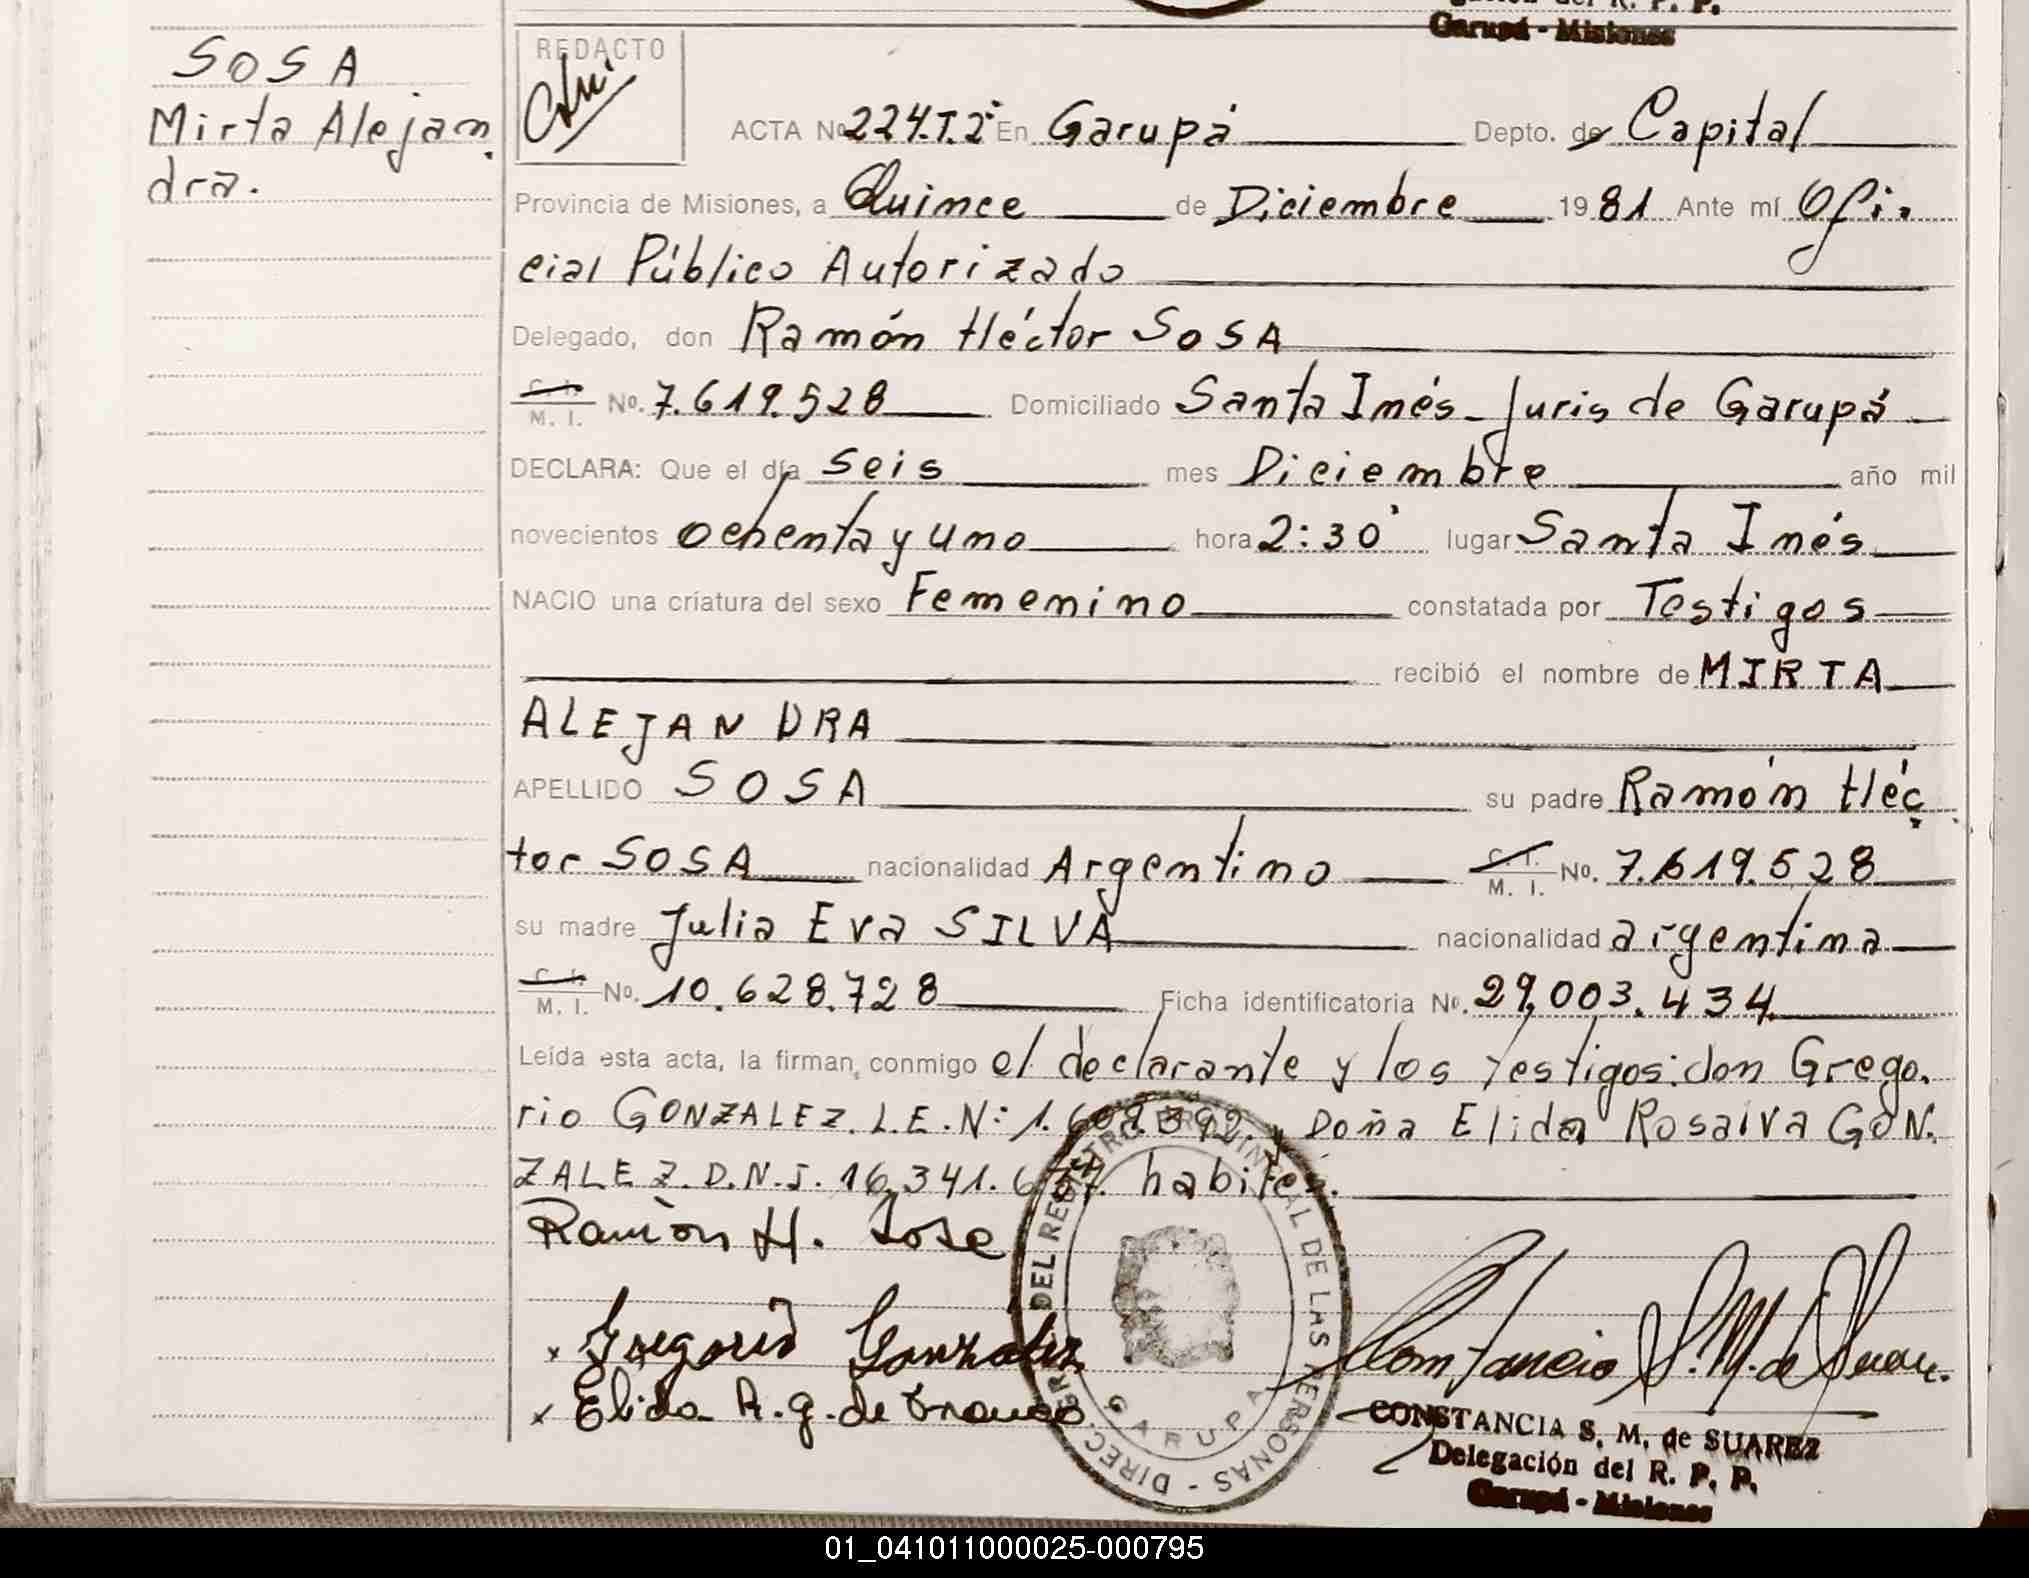 gación del R. P. P.
Garupá - Misiones
SOSA
Mirta Alejan
dra.
REDACTO
ACTA No 224.T.2° En Garupá Depto. de Capital
Provincia de Misiones, a Quince de Diciembre 1981 Ante mí Ofi-
cial Público Autorizado
Delegado, don Ramón Héctor SOSA
C. I.
M. I. No. 7.619.528 Domiciliado Santa Inés - Juris de Garupá
DECLARA: Que el día seis mes Diciembre año mil
novecientos ochenta y uno hora 2:30' lugar Santa Inés
NACIO una criatura del sexo Femenino constatada por Testigos
recibió el nombre de MIRTA
ALEJANDRA
APELLIDO SOSA su padre Ramón Héc
tor SOSA nacionalidad Argentino C. I. M. I. No. 7.619.528
su madre Julia Eva SILVA nacionalidad argentina
C. I.
M. I. No. 10.628.728 Ficha identificatoria No. 29.003.434
Leída esta acta, la firman conmigo el declarante y los testigos: don Grego-
rio GONZALEZ. L.E.N: y Doña Elida Rosalva GON.
ZALEZ. D.N.I. 16.341. habiles.
Ramón H. Sosa
x Gregorio Gonzalez
x Elida R. g. de Franco
Constancia S. M. de Suarez
DIREC. GRAL. DEL REGISTRO PROVINCIAL DE LAS PERSONAS - GARUPA
CONSTANCIA S. M. de SUAREZ
Delegación del R. P. P.
Garupá - Misiones
01_041011000025-000795